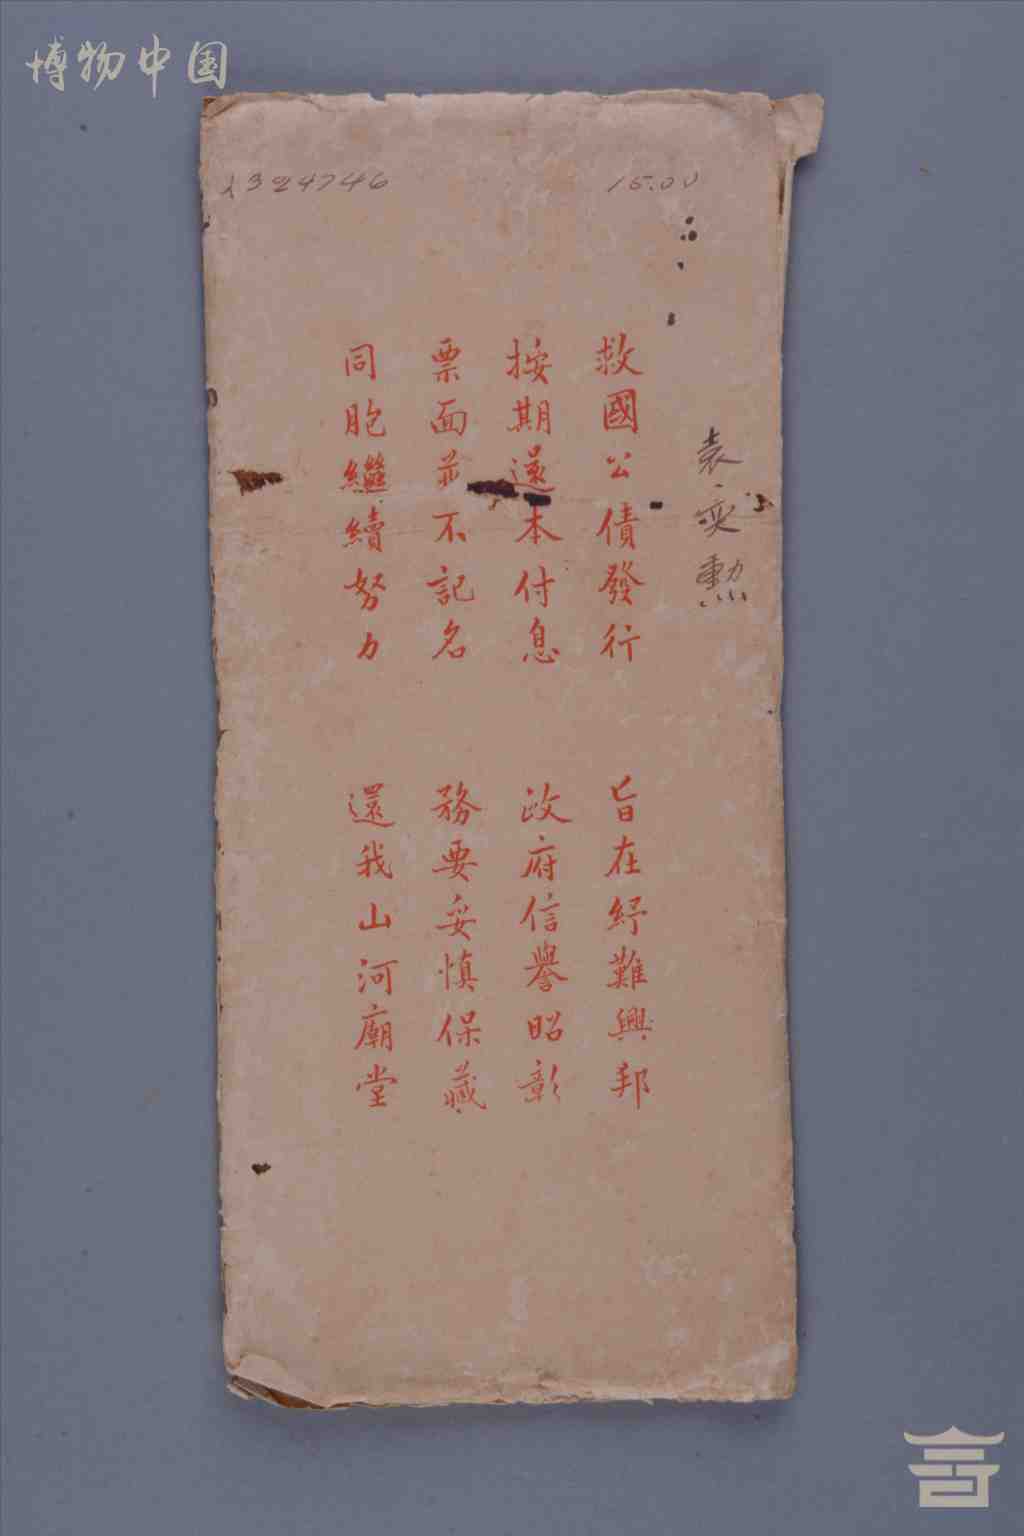 博物中国
2324746
15.00
袁奕勲
救國公債發行 旨在紓難興邦
按期還本付息 政府信譽昭彰
票面並不記名 務要妥慎保藏
同胞繼續努力 還我山河廟堂